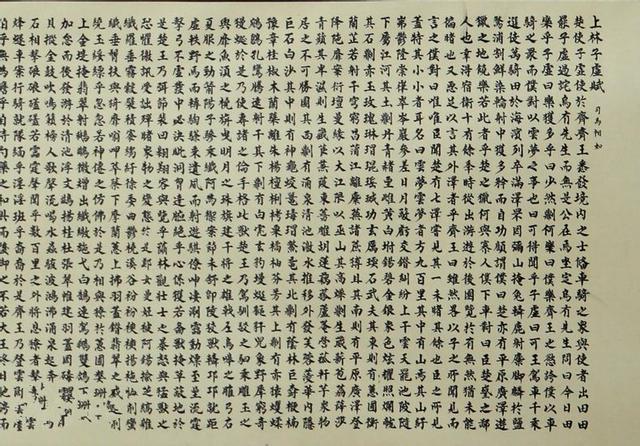 上林子虛賦 司馬相如
楚使子虛使於齊齊王悉發境內之士備車騎之衆與使者出田田
罷子虛過詫烏有先生而無是公在焉坐定烏有先生問曰今日田
樂乎子虛曰樂獲多乎曰少然則何樂僕樂齊王之欲誇僕以車
騎之衆而僕對以雲夢之事也曰可得聞乎子虛曰可王駕車千乘
選徒萬騎田於海濱列卒滿澤罘罔彌山掩兔轔鹿射麋腳麟於鹽
浦割鮮染輪射中獲多矜而自功顧謂僕曰楚亦有平原廣澤遊
獵之地饒樂若此者乎楚王之獵何與寡人僕下車對曰臣楚國之鄙
人也幸得宿衛十有餘年時從出遊遊於後園覽於有無然猶未能
徧睹也又惡足以言其外澤者乎齊王曰雖然略以子之所聞見而
言之僕對曰唯唯臣聞楚有七澤嘗見其一未睹其餘也臣之所見
蓋特其小小者耳名曰雲夢雲夢者方九百里其中有山焉其山則盤紆
岪鬱隆崇嵂崒岑巖參差日月蔽虧交錯糾紛上干青雲罷池陂陁
下屬江河其土則丹青赭堊雌黃白坿錫碧金銀衆色炫燿照爛龍鱗
其石則赤玉玫瑰琳瑉琨珸瑊玏玄厲瑌石武夫其東則有蕙圃衡
蘭芷若射干穹窮昌蒲江離麋蕪諸蔗猼且其南則有平原廣澤登
降陁靡案衍壇曼緣以大江限以巫山其高燥則生葴菥苞荔薛莎
青薠其卑濕則生藏莨蒹葭東蘠雕胡蓮藕菰蘆菴䕡軒芋衆物
居之不可勝圖其西則有涌泉清池激水推移外發芙蓉菱華內隱
巨石白沙其中則有神龜蛟鼉瑇瑁鼈黿其北則有陰林巨樹楩柟
豫章桂椒木蘭蘗離朱楊樝梸梬栗橘柚芬芳其上則有赤猿蠷蝚
鵷鶵孔鸞騰遠射干其下則有白虎玄豹蟃蜒貙犴兕象野犀窮奇
獌狿於是乃使專諸之倫手格此獸楚王乃駕馴駁之駟乘雕玉之
輿靡魚須之橈旃曳明月之珠旗建干將之雄戟左烏嗥之雕弓右
夏服之勁箭陽子驂乘纖阿為御案節未舒即陵狡獸轔邛邛蹴距
虛軼野馬而轊騊駼乘遺風而射遊騏儵眒凄浰雷動熛至星流霆
擊弓不虛發中必決眥洞胸達腋絕乎心繫獲若雨獸揜草蔽地於
是楚王乃弭節裴回翱翔容與覽乎陰林觀壯士之暴怒與猛獸之
恐懼徼受詘殫睹衆物之變態於是鄭女曼姬被阿錫揄紵縞雜
纖羅垂霧縠襞積褰縐紆徐委曲鬱橈谿谷衯衯裶裶揚袘卹削蜚
纖垂髾扶與猗靡噏呷萃蔡下摩蘭蕙上拂羽蓋錯翡翠之威蕤繆
繞玉綏縹乎忽忽若神僊之仿佛於是乃相與獠於蕙圃媻珊
上金隄揜翡翠射鵕鸃微矰出纖繳施弋白鵠連駕鵝雙鶬下
加怠而後發游於清池浮文鷁揚桂枻張翠帷建羽蓋罔瑇
貝摐金鼓吹鳴籟榜人歌聲流喝水蟲駭波鴻沸涌泉起奔
石相擊硠硠礚礚若雷霆之聲聞乎數百里之外將息獠者擊靈
燧車案行騎就隊纚乎淫淫班乎裔裔於是楚王乃登陽雲之臺
泊乎無為勺藥之和具而後御之不若大王終日馳騁而